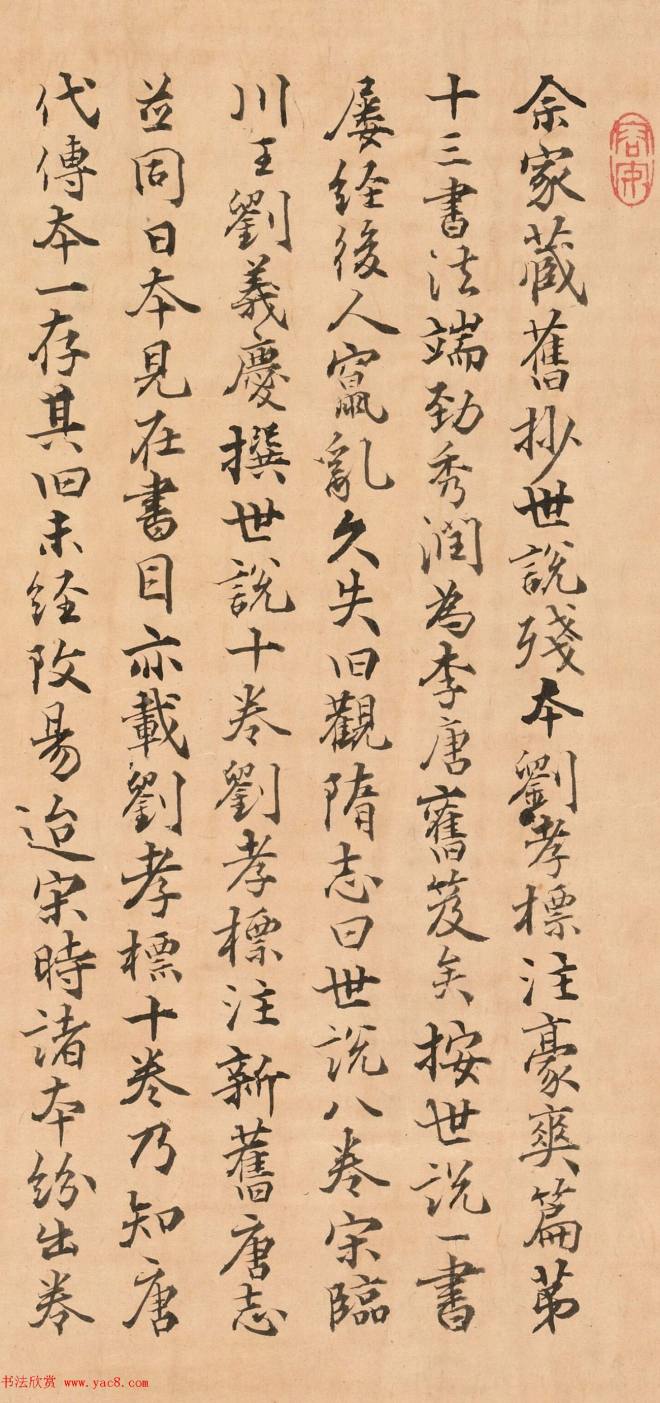 余家藏舊抄世說殘本劉孝標注豪爽篇第
十三書法端勁秀潤為李唐舊笈矣按世說一書
屡経後人竄亂久失旧觀隋志曰世說八卷宋臨
川王劉義慶撰世說十卷劉孝標注新舊唐志
並同日本見在書目亦載劉孝標十卷乃知唐
代傳本一存其旧未経改易迨宋時諸本紛出卷
书法欣赏 www.yac8.com